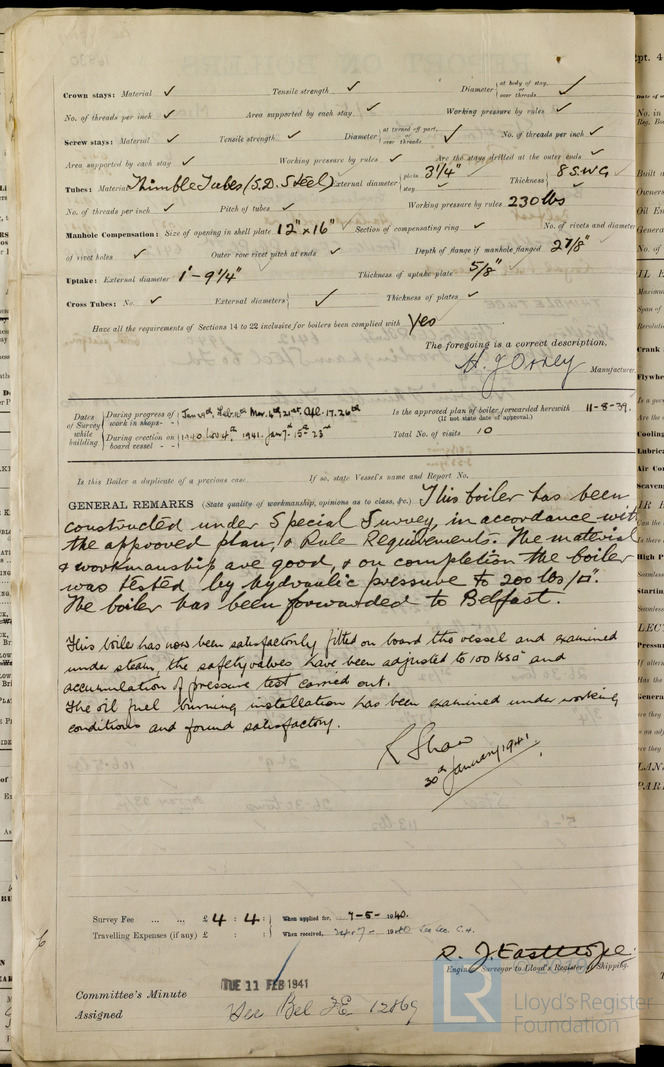 Crown stays: Material ✓ Tensile strength ✓ Diameter at body of stay, or over threads ✓
No. of threads per inch ✓ Area supported by each stay ✓ Working pressure by rules ✓
Screw stays: Material ✓ Tensile strength ✓ Diameter at turned off part, or over threads ✓ No. of threads per inch ✓
Area supported by each stay ✓ Working pressure by rules ✓ Are the stays drilled at the outer ends ✓
Tubes: Material Thimble Tubes (S.D. Steel) External diameter plain stay 3 1/4" Thickness 8 S.W.G
No. of threads per inch ✓ Pitch of tubes ✓ Working pressure by rules 230 lbs
Manhole Compensation: Size of opening in shell plate 12" x 16" Section of compensating ring ✓ No. of rivets and diameter
of rivet holes ✓ Outer row rivet pitch at ends ✓ Depth of flange if manhole flanged 2 7/8"
Uptake: External diameter 1'-9 1/4" Thickness of uptake plate 5/8"
Cross Tubes: No. ✓ External diameters ✓ Thickness of plates ✓
Have all the requirements of Sections 14 to 22 inclusive for boilers been complied with Yes
The foregoing is a correct description,
Manufacturer.
Dates of Survey while building During progress of work in shops - - Mar. 4th, 21st, Apl. 17. 26th
During erection on board vessel - - 1940 Nov 4th 1941. Jany 7th 15th 23rd
Is the approved plan of boiler forwarded herewith 11-8-39.
(If not state date of approval.)
Total No. of visits 10
Is this Boiler a duplicate of a previous case. If so, state Vessel's name and Report No.
GENERAL REMARKS (State quality of workmanship, opinions as to class, &c.) This boiler has been
constructed under Special Survey, in accordance with
the approved plan, & Rule Requirements. The material
& workmanship are good, & on completion the boiler
was tested by hydraulic pressure to 200 lbs/□".
The boiler has been forwarded to Belfast.
This boiler has now been satisfactorily fitted on board the vessel and examined
under steam, the safety valves have been adjusted to 100 lbs □" and
accumulation of pressure test carried out.
The oil fuel burning installation has been examined under working
conditions and found satisfactory.
R Shaw
30th January 1941.
Survey Fee ... ... £ 4 : 4 : When applied for, 7-5-1940.
Travelling Expenses (if any) £ : : When received, 19
R. J. Easthope
Engineer Surveyor to Lloyd's Register of Shipping.
TUE 11 FEB 1941
Committee's Minute
Assigned See Bel FE 12869
© 2019
LR Lloyd's Register
Foundation